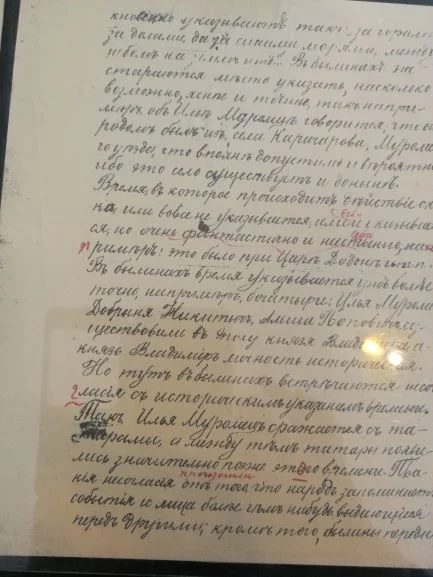 кновенно указываютъ такъ: за горами
за долами, за синими морями, между
небомъ на землѣ и т.п. Въ былинахъ же
стараются мѣсто указать, насколько
возможно, яснѣе и точнѣе, такъ напри-
мѣръ, объ Ильѣ Муромцѣ говорится, что
родомъ былъ изъ села Карачарова, Муромска
го уѣзда, что вполнѣ допустимо и вѣроятно
ибо это село существуетъ и донынѣ.
Время, въ которое происходитъ дѣйствіе ска
ка, или вовсе не указывается, или указывает
ся, но очень фантастично и
примѣръ: это было при Царѣ Додонѣ и т.п.
Въ былинахъ время указывается
точно, напримѣръ, богатыри: Илья Муромецъ
Добрыня Никитычъ, Алеша Поповичъ су-
ществовали въ эпоху князя Владиміра, а
князь Владиміръ личность историческая.
Но тутъ въ былинахъ встрѣчаются несо-
гласія съ историческимъ указаніемъ времени.
Такъ Илья Муромецъ сражается съ та-
тарами, а между тѣмъ татары появи
лись значительно позже этого времени. Та-
кія несогласія произошли отъ того, что народъ запоминаетъ
событія и лица болѣе чѣмъ нибудь выдающіеся
передъ другими; кромѣ того, былины